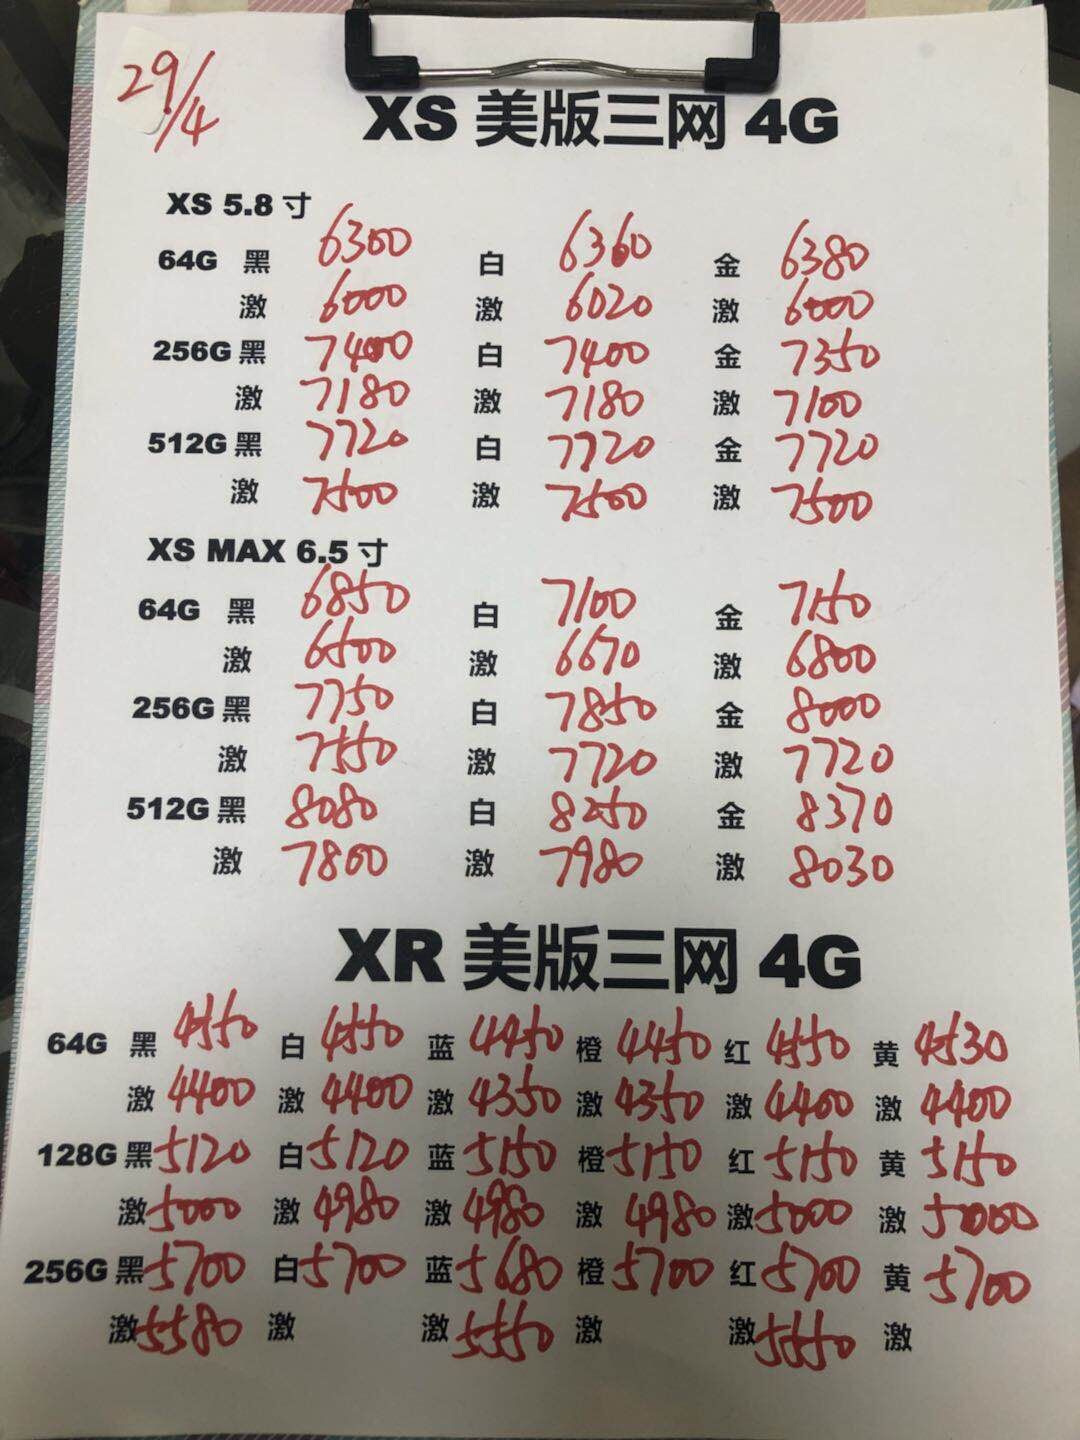 29/4
XS 美版三网 4G
XS 5.8 寸
64G 黑 6300 白 6360 金 6380
激 6000 激 6020 激 6000
256G 黑 7400 白 7400 金 7350
激 7180 激 7180 激 7100
512G 黑 7720 白 7720 金 7720
激 7500 激 7500 激 7500
XS MAX 6.5 寸
64G 黑 6850 白 7100 金 7150
激 6500 激 6670 激 6800
256G 黑 7750 白 7850 金 8000
激 7550 激 7720 激 7720
512G 黑 8080 白 8250 金 8370
激 7800 激 7980 激 8030
XR 美版三网 4G
64G 黑 4550 白 4550 蓝 4450 橙 4450 红 4550 黄 4530
激 4400 激 4400 激 4350 激 4350 激 4400 激 4400
128G 黑 5120 白 5120 蓝 5150 橙 5150 红 5150 黄 5150
激 5000 激 4980 激 4980 激 4980 激 5000 激 5000
256G 黑 5700 白 5700 蓝 5680 橙 5700 红 5700 黄 5700
激 5580 激 激 5550 激 激 5550 激